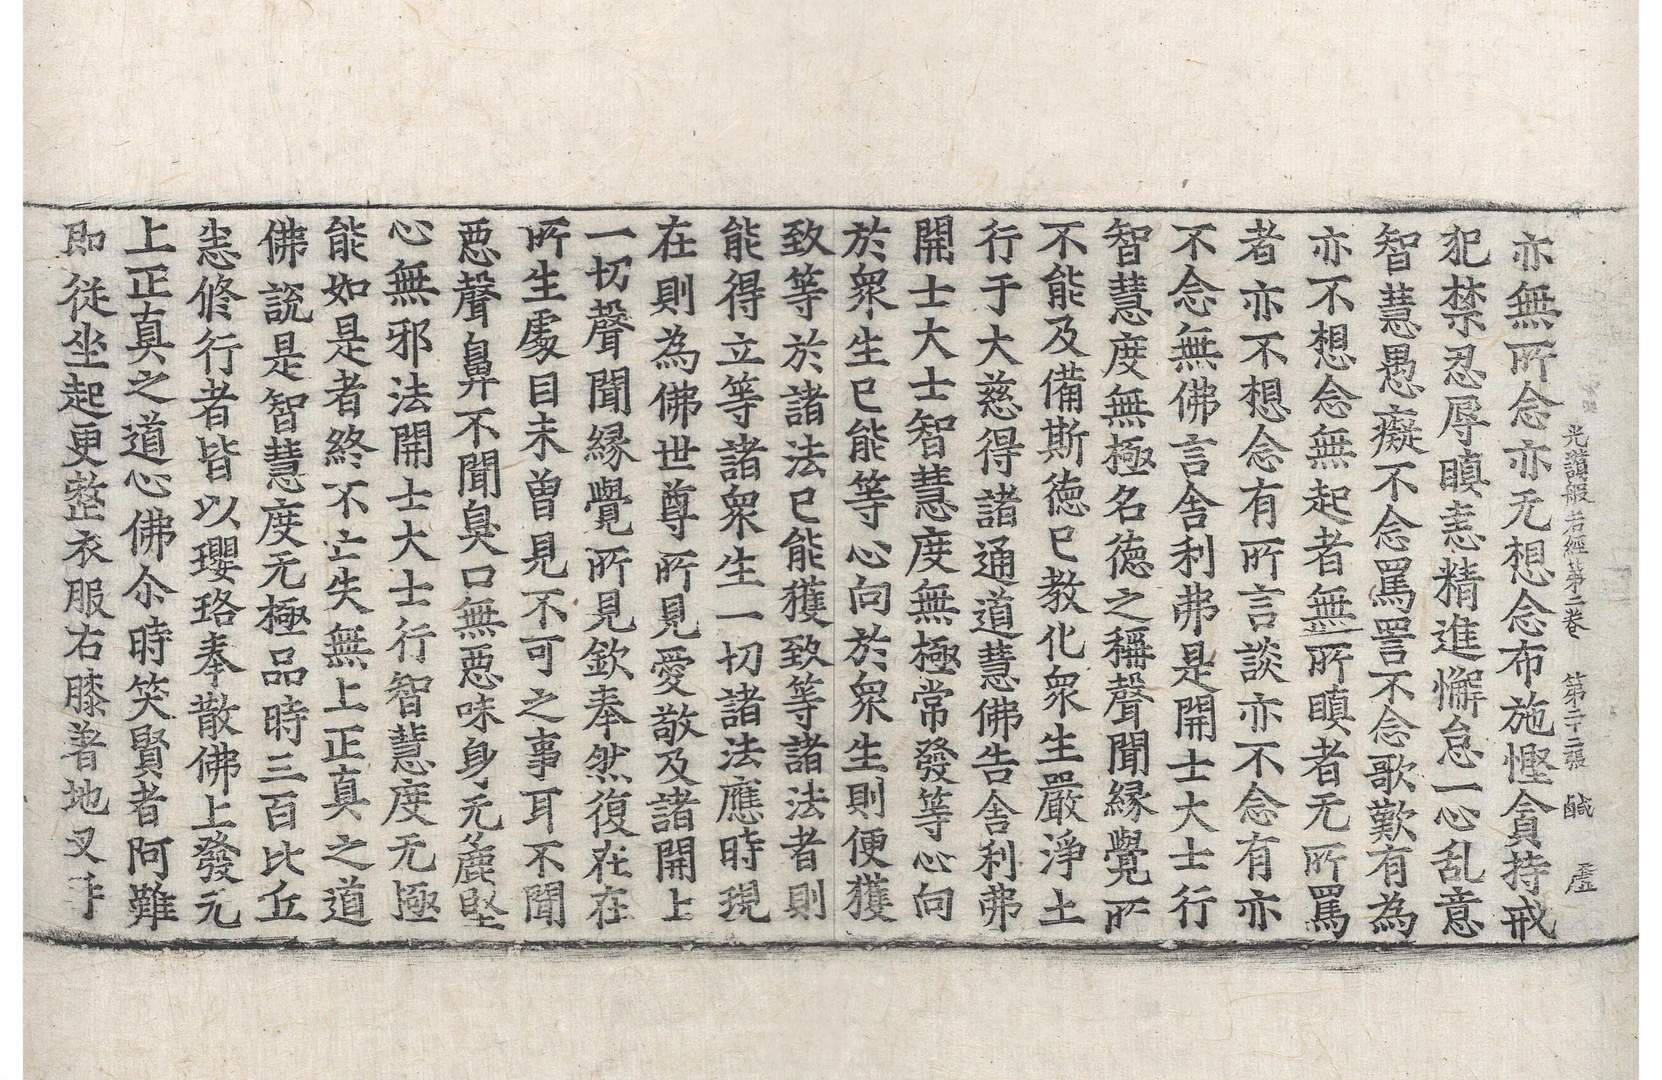 光讚般若經第二卷 第二十二張 鹹 虛
亦無所念亦无想念布施慳貪持戒
犯禁忍辱瞋恚精進懈怠一心乱意
智慧愚癡不念罵詈不念歌歎有為
亦不想念無起者無所瞋者无所罵
者亦不想念有所言談亦不念有亦
不念無佛言舍利弗是開士大士行
智慧度無極名德之稱聲聞緣覺所
不能及備斯德已教化衆生嚴淨土
行于大慈得諸通道慧佛告舍利弗
開士大士智慧度無極常發等心向
於衆生已能等心向於衆生則便獲
致等於諸法已能獲致等諸法者則
能得立等諸衆生一切諸法應時現
在則為佛世尊所見愛敬及諸開上
一切聲聞緣覺所見欽奉然復在在
所生處目未曾見不可之事耳不聞
惡聲鼻不聞臭口無惡味身无麁堅
心無邪法開士大士行智慧度无極
能如是者終不亡失無上正真之道
佛說是智慧度无極品時三百比丘
恚修行者皆以瓔珞奉散佛上發元
上正真之道心佛尒時笑賢者阿難
即從坐起更整衣服右膝著地叉手